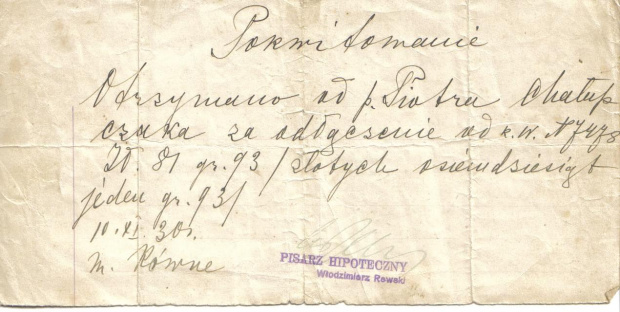 Pokwitowanie
Otrzymano od p. Piotra Chałup
czaka za odłączenie od k.w. N 7478
Zł. 81 gr. 93 / złotych osiemdziesiąt
jeden gr. 93/
10.XI.30r.
m. Równe
PISARZ HIPOTECZNY
Włodzimierz Rawski